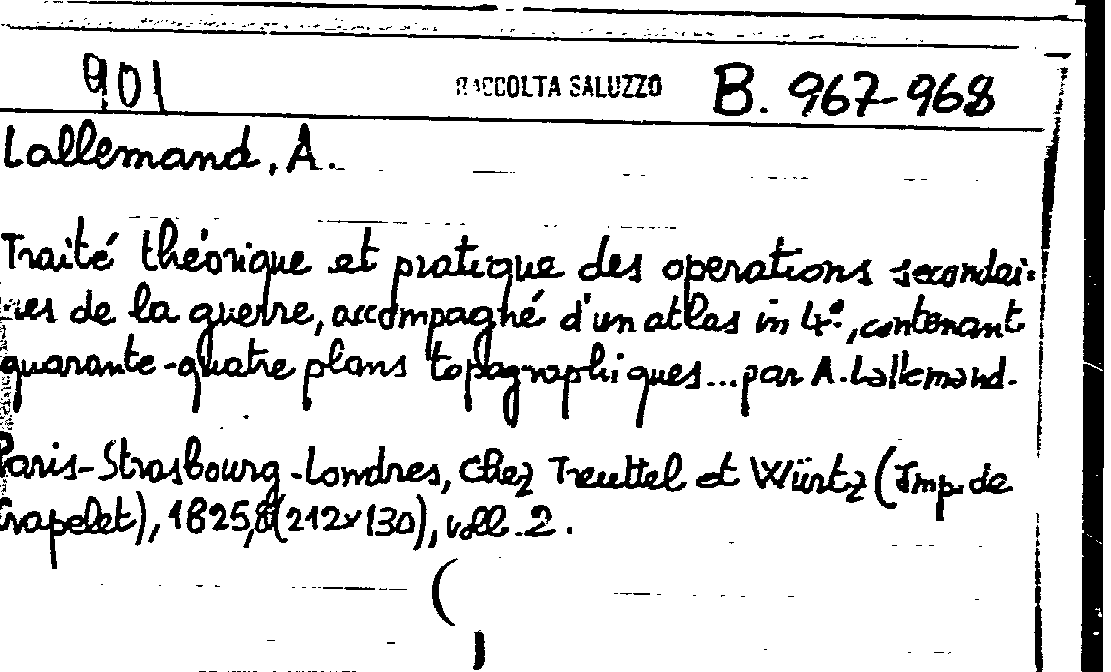 901 RACCOLTA SALUZZO B. 967-968
Lallemand, A.
Traité théorique et pratique des operations secondai-
res de la guerre, accompagné d'un atlas in 4º, contenant
quarante-quatre plans topographiques...par A. Lallemand.
Paris-Strasbourg-Londres, chez Treuttel et Würtz (Imp. de
Crapelet), 1825, 8º (212x130), voll. 2.